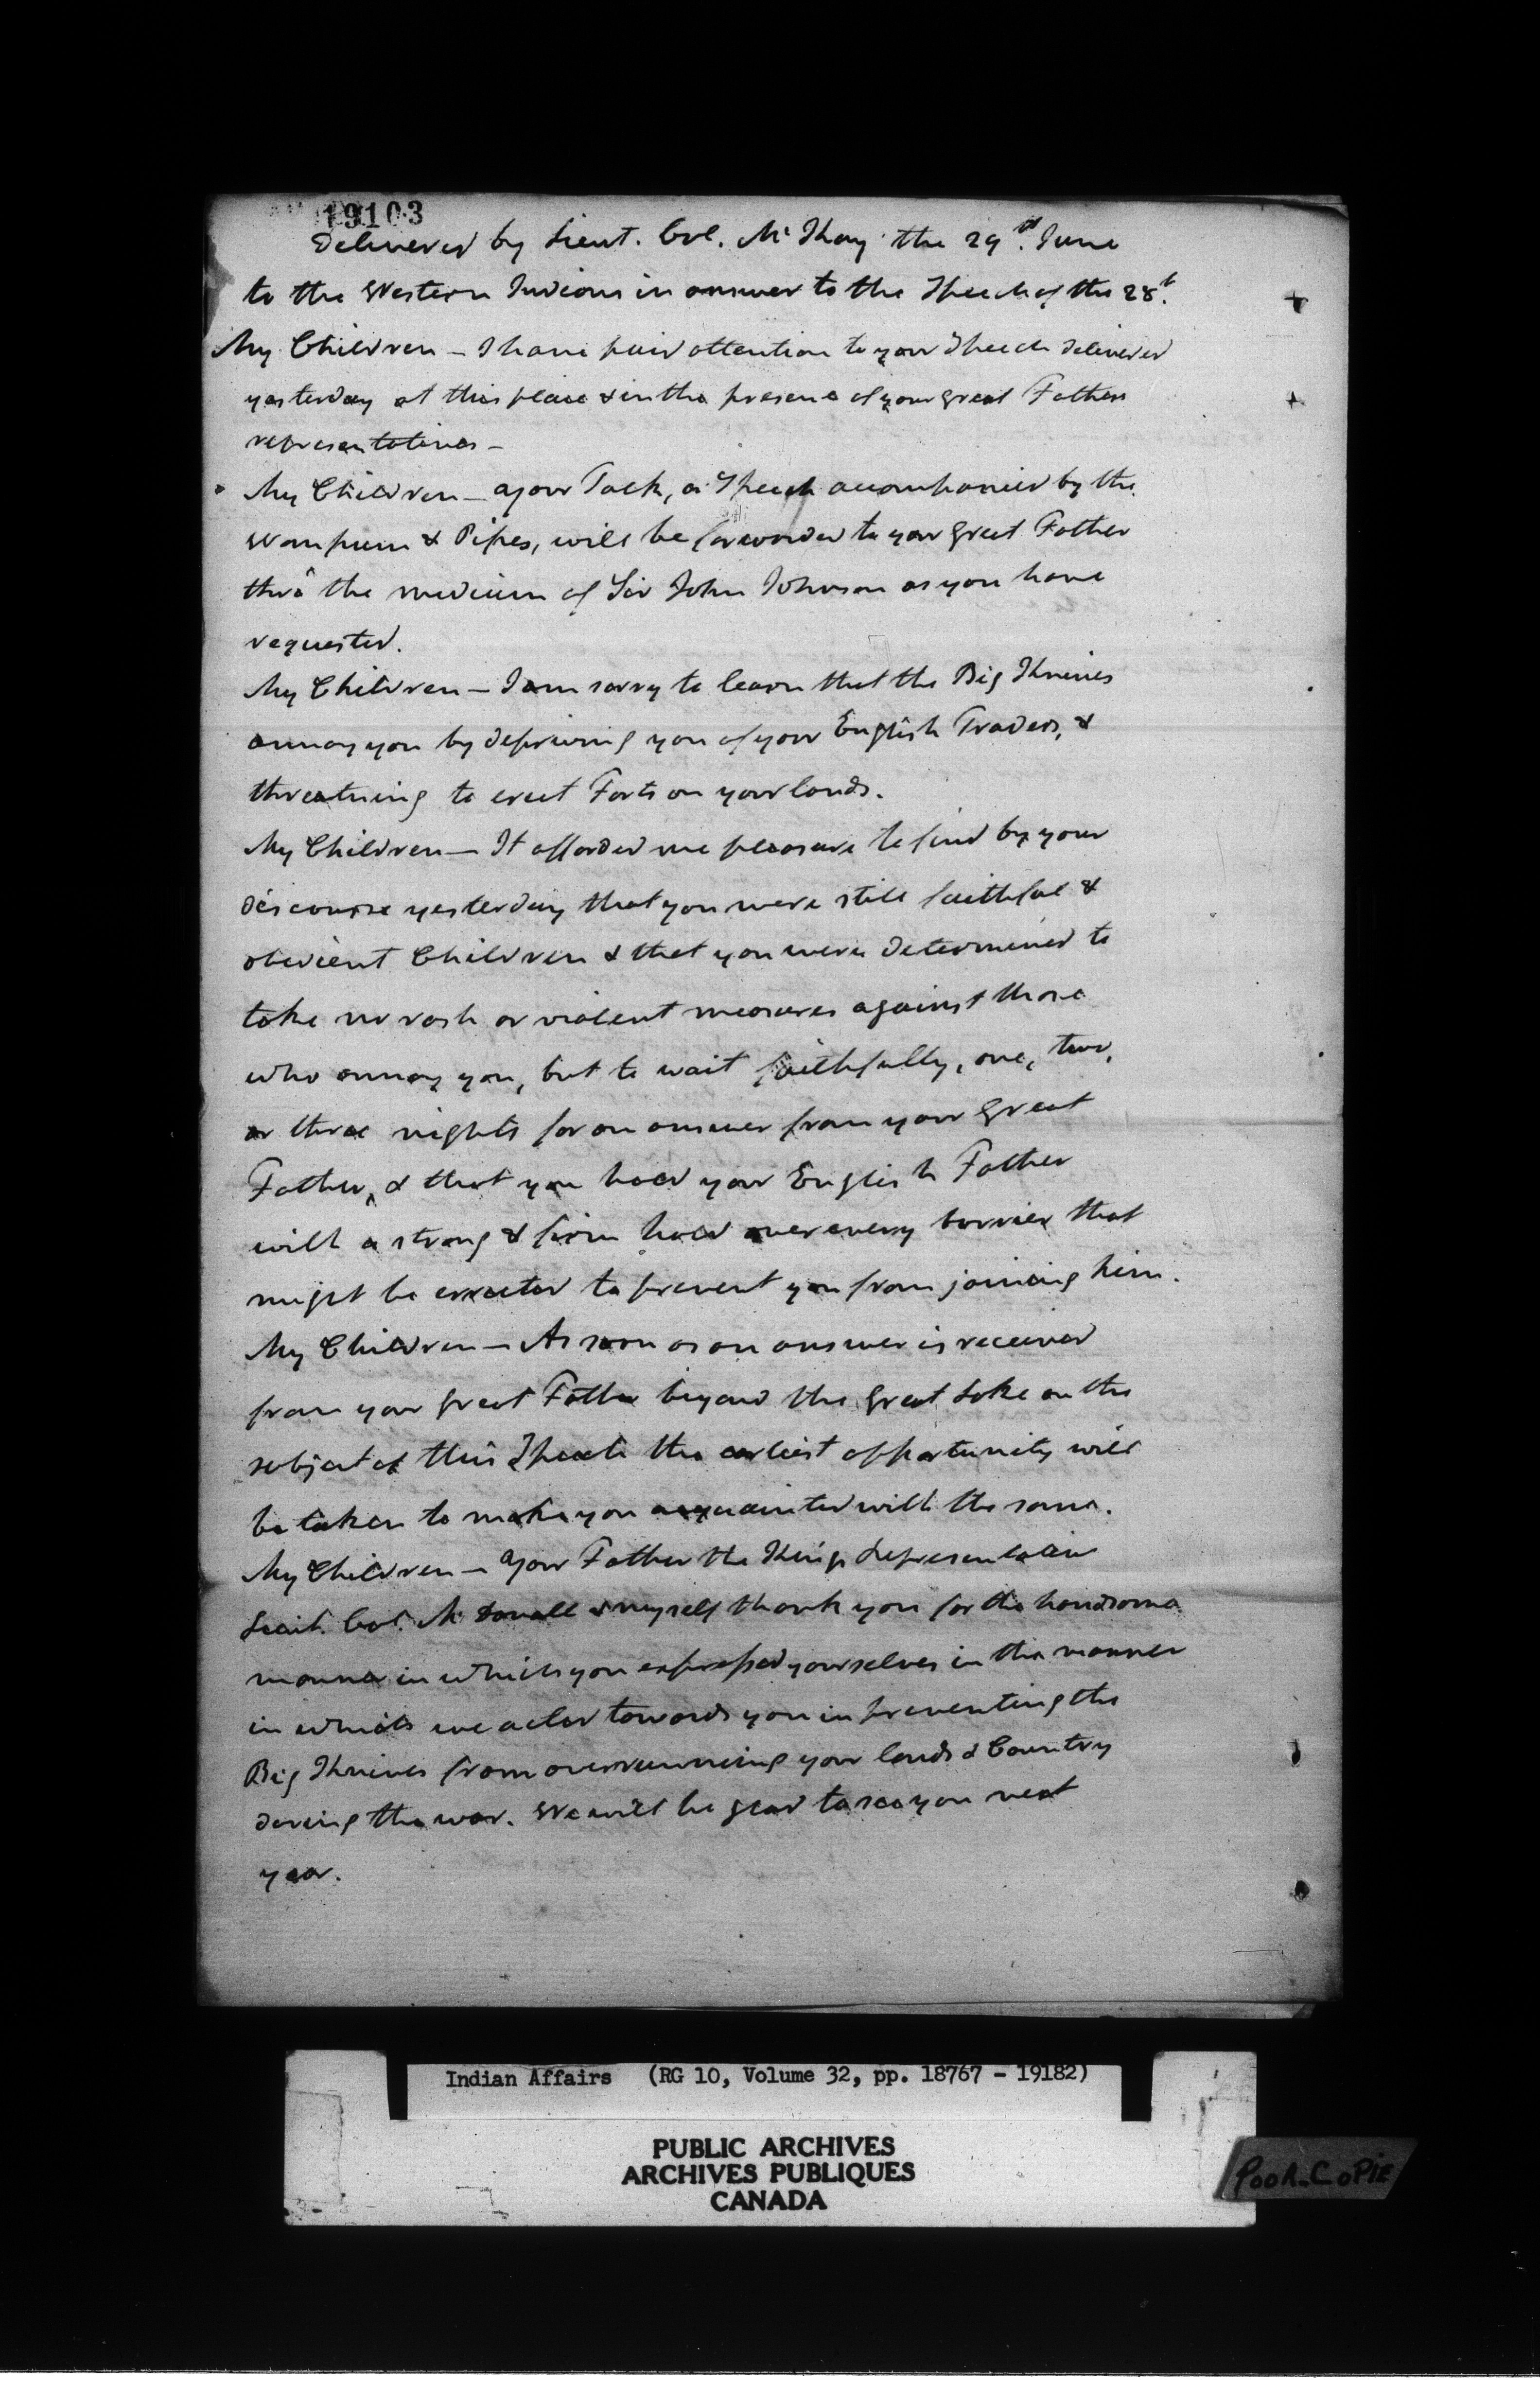 19103
Delivered by Lieut. Col. Mc Kay the 29th June
to the Western Indians in answer to the Speech of the 28t.
My Children — I have paid attention to your Speech delivered
yesterday at this place & in the presence of your great Fathers
representatives —
My Children — Your Talk, or Speech accompanied by the
Wampum & Pipes, will be forwarded to your great Father
thro' the medium of Sir John Johnson as you have
requested.
My Children — I am sorry to learn that the Big Knives
annoy you by depriving you of your English Traders, &
threatning to erect Forts on your lands.
My Children — It afforded me pleasure to find by your
discourse yesterday that you were still faithful &
obedient Children & that you were determined to
take no rash or violent measures against those
who annoy you, but to wait faithfully, one, two,
or three nights for an answer from your Great
Father, & that you hold your English Father
with a strong & firm hold over every barrier that
might be erected to prevent you from joining him.
My Children — As soon as an answer is received
from your great Father beyond the Great Lake on the
subject of this Speech the earliest opportunity will
be taken to make you acquainted with the same.
My Children — Your Father the Kings Representative
Lieut. Col. Mc Douall & myself thank you for the handsome
manner in which you expressed yourselves in the manner
in which we acted towards you in preventing the
Big Knives from overrunning your lands & Country
during the war. We will be glad to see you next
year.
Indian Affairs (RG 10, Volume 32, pp. 18767 - 19182)
PUBLIC ARCHIVES
ARCHIVES PUBLIQUES
CANADA
POOR_COPIE